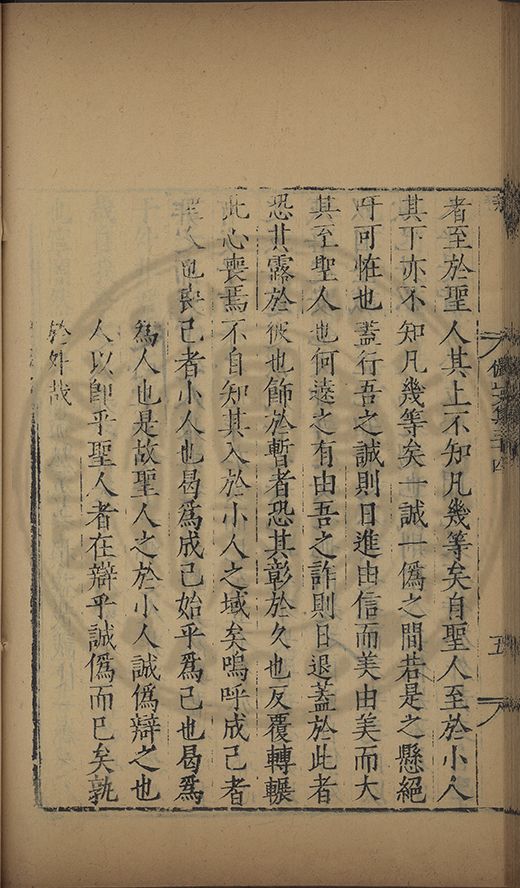 者至於聖人其上不知凡幾等矣自聖人至於小人
其下亦不知凡幾等矣一誠一偽之間若是之懸絕
吁可恠也蓋行吾之誠則日進由信而美由美而大
其至聖人也何遠之有由吾之詐則日退蓋於此者
恐其露於彼也飾於暫者恐其彰於久也反覆轉輾
此心喪焉不自知其入於小人之域矣嗚呼成己者
聖人也喪己者小人也曷為成己始乎為己也曷為
為人也是故聖人之於小人誠偽辯之也
人以即乎聖人者在辯乎誠偽而已矣孰
於外哉
五